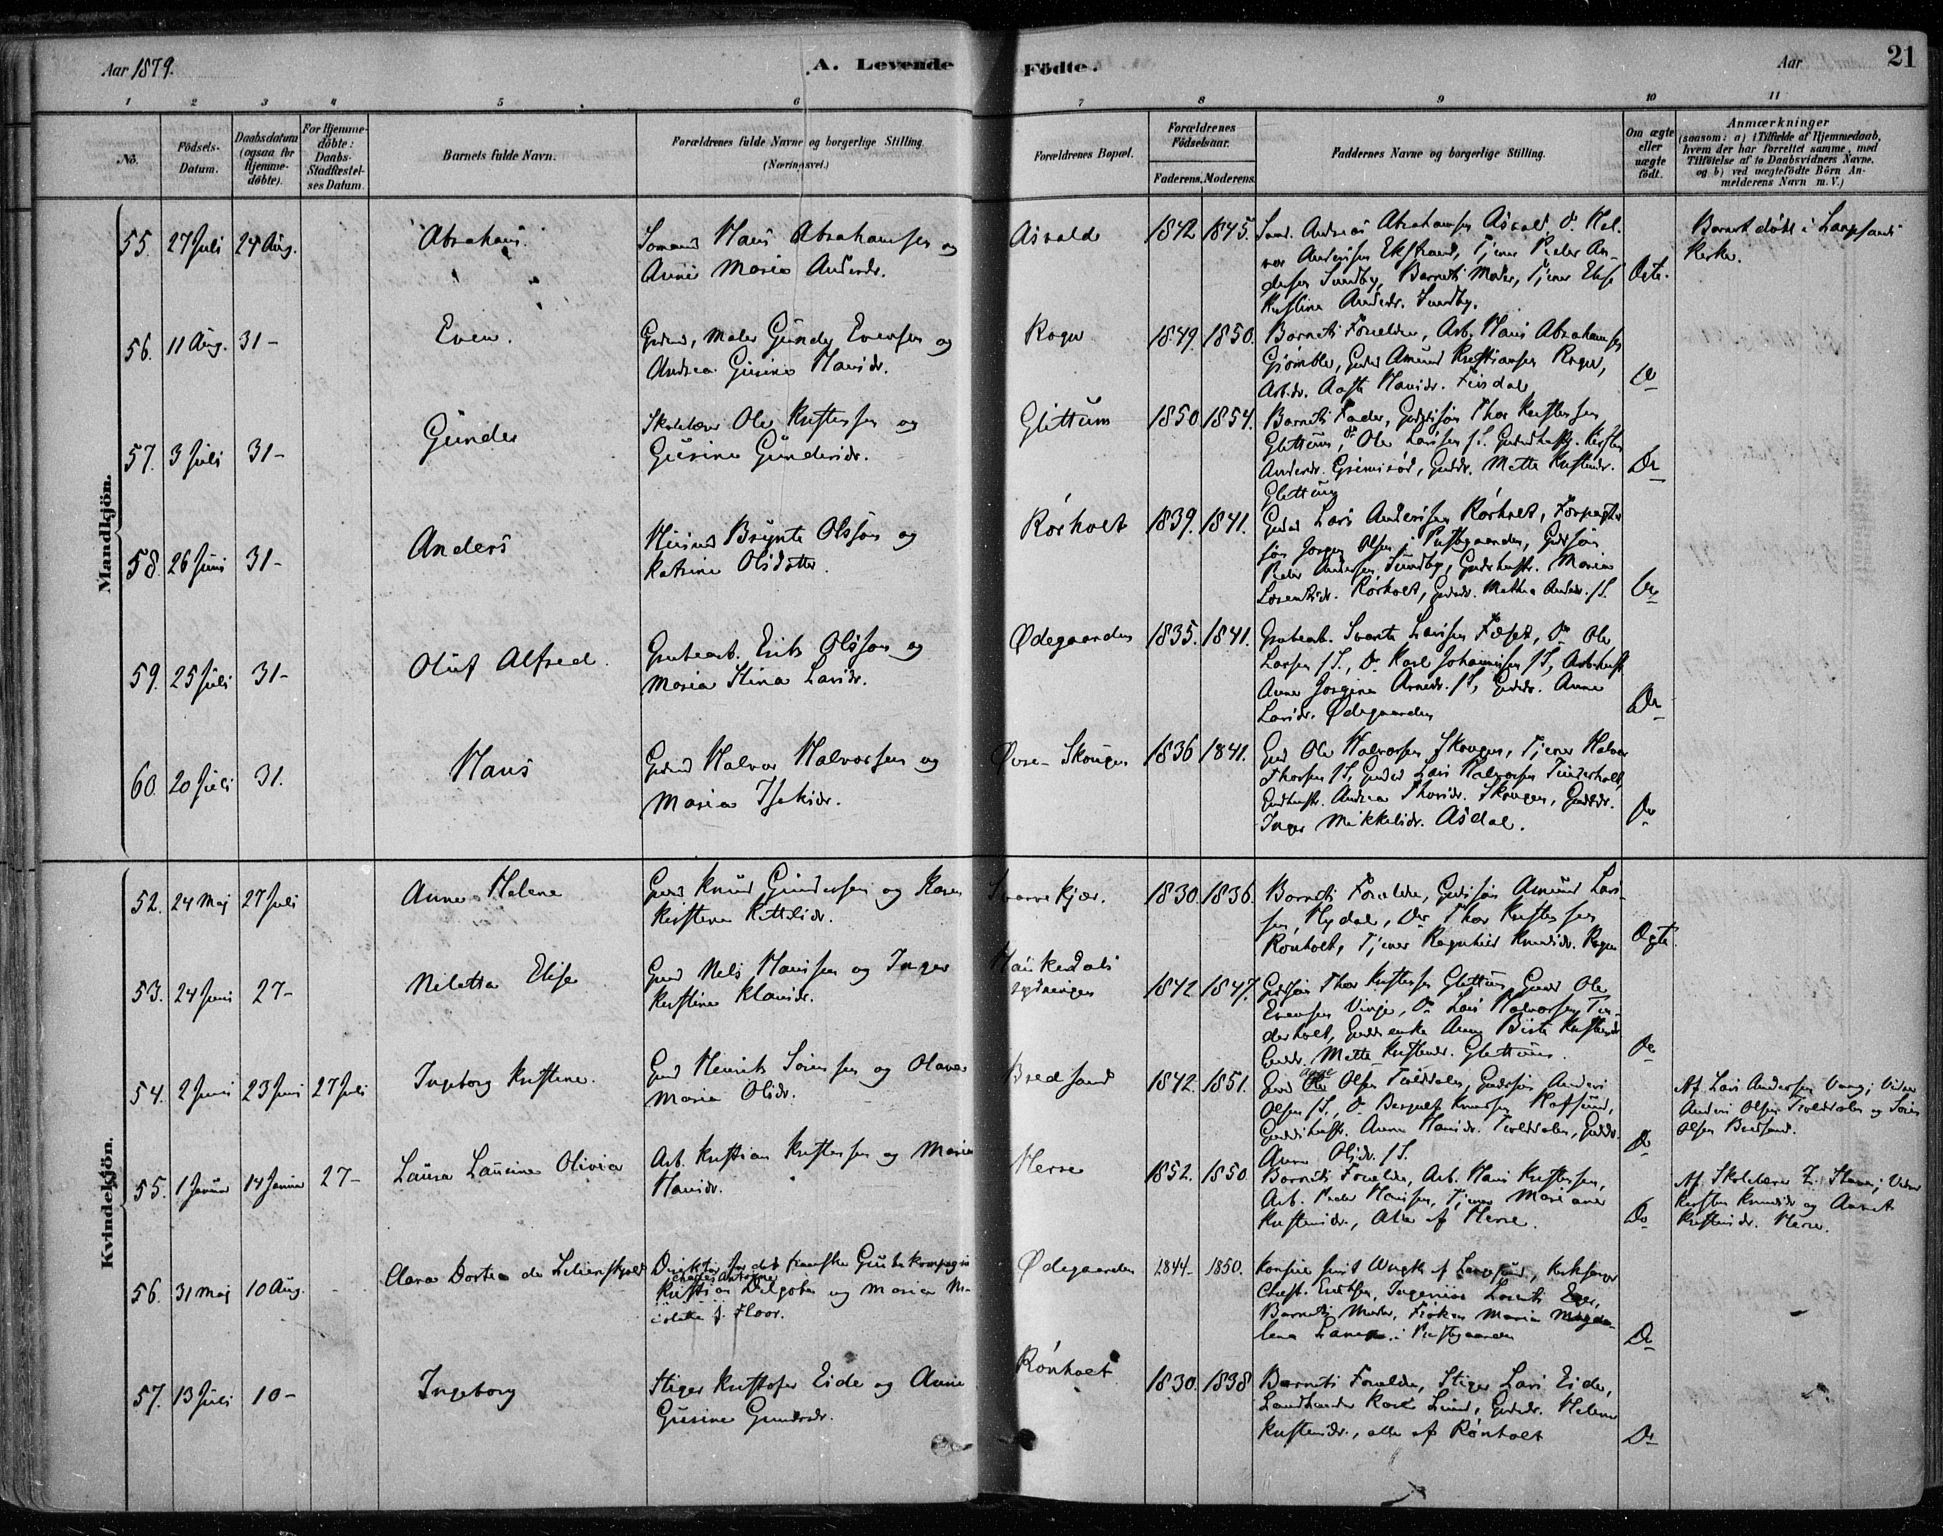 Aar 1879.
A. Levende Födte.
Aar
21
1 2 3 4 5 6 7 8 9 10 11
No.
Födsels-
Datum.
Daabsdatum
(ogsaa for
Hjemme-
döbte).
For Hjemme-
döbte:
Daabs-
Stadfæstel-
ses Datum.
Barnets fulde Navn.
Forældrenes fulde Navne og borgerlige Stilling
(Næringsvei.)
Forældrenes Bopæl.
Forældrenes
Födselsaar.
Faderens. Moderens.
Faddernes Navne og borgerlige Stilling.
Om ægte
eller
uægte
födt.
Anmærkninger
(saasom: a) i Tilfælde af Hjemmedaab,
hvem der har forrettet samme, med
Tilföielse af to Daabsvidners Navne.
og b) ved uægtefödte Börn An-
melderens Navn m. V.)
Mandkjön.
55. 27 Juli 24 Aug.
Abraham
Somand Hans Abrahamsen og
Anne Maria Andersdr.
Asvald
1842 1845.
Andreas Abrahamsen Asvald, Do Hal-
vor Andersen Ekstrand, Tjener Peder An-
dersen Sundby, Barnets Moder, Tjener Else
Kirstine Andersdr. Sundby.
Ægte.
Barnet döbt i Langesunds
Kirke.
56. 11 Aug. 31-
Even.
Gbrd, Maler Gunder Evensen og
Andrea Gusine Hansdr.
Rogn
1849. 1850.
Barnets Forældre, Arb. Hans Abrahamsen
Amund Kristiansen Rogn,
Aaste Hansdr. Findal
Do
57. 3 Juli 31-
Gunder
Skolelærer Ole Kristensen og
Gusine Gundersdr.
Glittum
1850 1854.
Barnets Fader, Gbrdsøn Thor Kristensen
Glittum, Do Ole Larsen
Andersdr. Grimsrød, Mette Kristensdr.
Glittum
Do
58. 26 Juni 31-
Anders
Husmd Brynte Olsson og
Katrine Olsdatter.
Rørholt
1839. 1841.
Lars Andersen Rørholt, Forpagter
Jørgen Olsen i Præstegaarden,
Peder Andersen Sundby, Maria
Lorentsdr. Rørholt, Mathea
Do
59. 25 Juli 31-
Oluf Alfred.
Grubearb. Erik Olsson og
Maria Stina Larsdr.
Ødegaarden
1835. 1841.
Grubearb. Svante Larsen Fæset, Do Ole
Larsen s. S., Do Karl Johannesen s. S,
Anne Jorgine Arnesdr. s. S, Anne
Larsdr. Ødegaarden
Do
60. 20 Juli 31.
Hans
Gbrd Halvor Halvorsen og
Maria Isaksdr.
Øvre- Skougen
1836 1841.
Gbrd Ole Halvorsen Skougen, Tjener Halvor
Thorsen s. S, Lars Halvorsen Tinderholt,
Andrea Thorsdr. Skougen,
Inger Mikkelsdr. Asdal.
Do
Kvindekjön.
52. 24 Maj 27 Juli
Anne Helene
Gbrd Knud Gundersen og Karen
Kirstine Kittilsdr.
1830. 1836.
Barnets Forældre, Gbrdsøn Amund Lar-
sen, Nydal, Do Thor Kristensen
Rønholt, Tjener Ragnhild Knudsdr. Rogn
Ægte.
53. 24 Juni 27-
Niletta Elise
Gbrd Nels Hansen og Inger
Kirstine Klausdr.
Haukedals
1842 1847.
Gbrdsøn Thor Kristensen Glittum, Gbrd Ole
Evensen Vinje, Do Lars Halvorsen Tin-
derholt, enke Anne Birte Kristensdr
Mette Kristensdr. Glittum.
Do
54. 2 Juni 23 Juni 27 Juli
Ingeborg Kirstine.
Gbrd Henrik Sørensen og Olava
Maria Olsdr.
Bredsand
1842. 1851.
Gbrd Aage Olsen Trolddalen, Gbrdsøn Anders
Olsen s. S., Do Knudsen Hafsund,
Anne Hansdr. Trolddalen,
Anne Olsdr. s. S.
Do
Af Lars Andersen Vang; Vidner
Anders Olsen Trolddalen og Sören
Olsen Bredsand.
55. 1 Januar 14 Januar 27-
Laura Laurine Olivia
Arb. Kristian Kristensen og Maria
Hansdr.
Herre
1852. 1850.
Barnets Forældre, Arb. Hans Kristensen,
Arb. Peder Hansen, Tjener Mariane
Kristensdr., Alle af Herre.
Do
Af Skolelærer Z. Stene; Vidner
Kirsten Knudsdr og Aaret
Kristensdr. Herre.
56. 31 Maj 10 Aug.
Clara Dortea de Lilienskjold
Direktör for det franske Grubekompagni
Charles Antoine
Kristian Delgobe og Maria Ni-
colette f. Floor.
Ødegaarden
1844- 1850.
Konsul Wright af Langesund, Kirkesanger
Christ. Ingeniør Lorents Eger,
Barnets Moder, Frøken Maria Magda-
lena i Præstegaarden
Do
57. 13 Juli 10-
Ingeborg
Stiger Kristofer Eide og Anne
Gusine Gundersdr.
Rønholt
1830. 1838
Barnets Forældre, Stiger Lars Eide,
Landhandler Karl Lund, Helene
Kristensdr., alle af Rønholt
Do